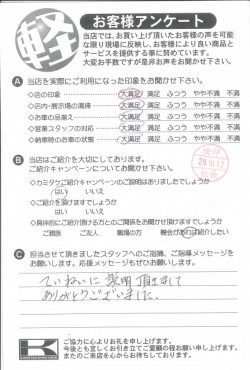 軽
お客様アンケート
当店では、お買い上げ頂いたお客様の声を可能
な限り現場に反映し、お客様により良い商品と
サービスを提供する事に努めています。
大変お手数ですが是非お声をお聞かせ下さい。
A 当店を実際にご利用になった印象をお聞かせ下さい。
◇店の印象 大満足 満足 ふつう やや不満 不満
◇店内・展示場の清掃 大満足 満足 ふつう やや不満 不満
◇お車の品揃え 大満足 満足 ふつう やや不満 不満
◇営業スタッフの対応 大満足 満足 ふつう やや不満 不満
◇納車時のお車の状態 大満足 満足 ふつう やや不満 不満
B 当店はご紹介を大切にしております。
ご紹介キャンペーンについてお聞かせ下さい。
29.10.17
◇カミタケご紹介キャンペーンのご説明はありましたでしょうか
はい いいえ
◇ご紹介を頂けますでしょうか
はい いいえ
◇具体的にご紹介頂ける方とのご関係をお聞かせ頂けますでしょうか
ご親族 ご友人 職場の方 機会があれば紹介したい
C 担当させて頂きましたスタッフへのご感想、ご指導メッセージを
お願いします。応援メッセージもぜひお願いします。
ていねいに説明頂きまして
ありがとうございました。
K
ご協力に心よりお礼を申し上げます。
今後とも宜しくお引き立てご愛顧の程お願い申し上げます。
またのご来店を心からお待ちしております。